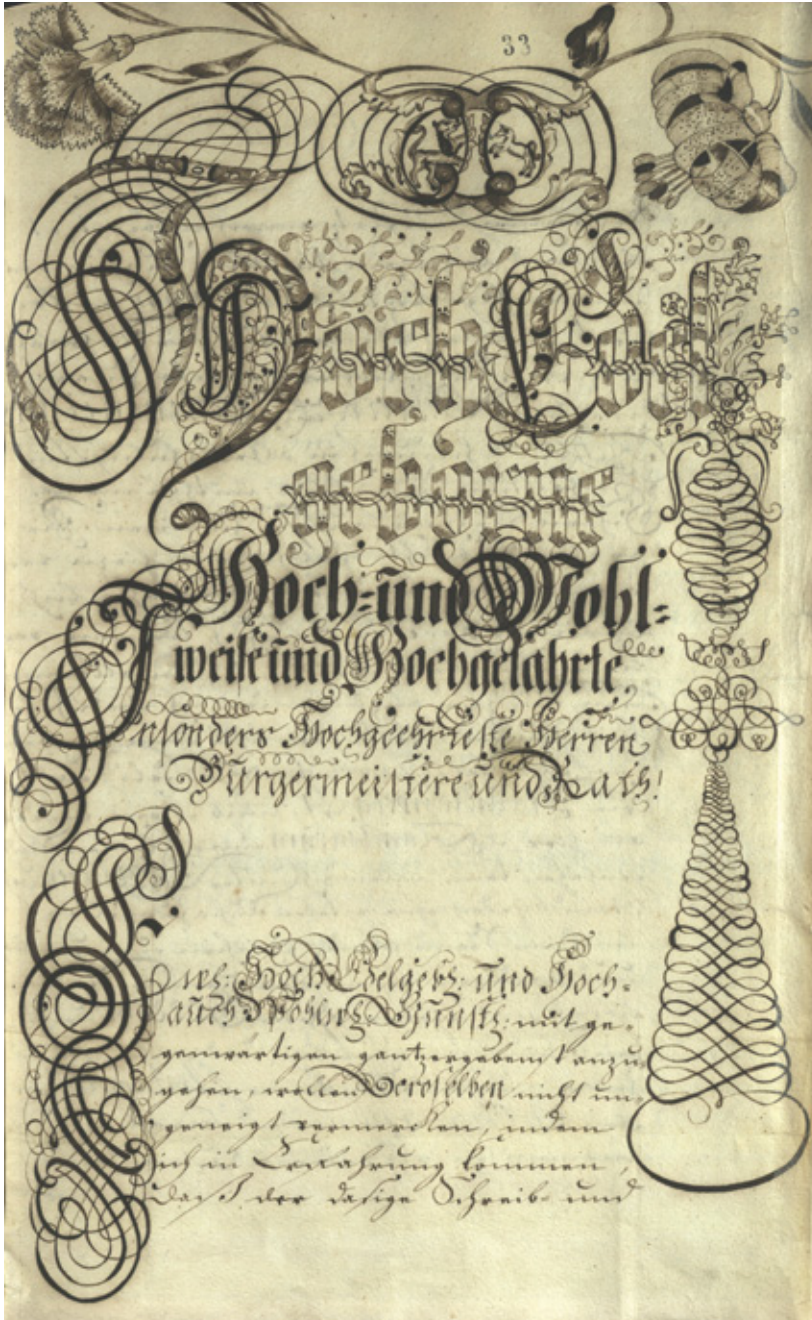 33
HochEdel
geborne
Hoch= und Wohl=
weise und Hochgelahrte,
Insonders Hochgeehrteste Herren
Bürgermeistere und Rath!
Ew: HochEdelgeb: und Hoch=
auch Wohlw: Gunst: mit ge=
genwärtigen gantz ergebenst anzu=
gehen, wollen Dieselben nicht un=
geneigt vermercken, indem
ich in Erfahrung kommen,
daß der dasige Schreib= und